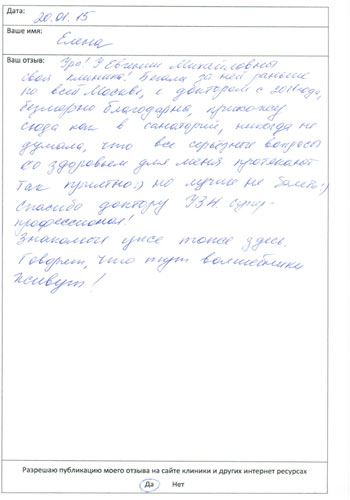 Дата:
20.01.15
Ваше имя:
Елена
Ваш отзыв:
Ура! У Евгении Михайловны
своя клиника! Бегала за ней раньше
по всей Москве, с доктором с 2011 года,
безмерно благодарна, прихожу
сюда как в санаторий, никогда не
думала, что все серьезные вопросы
со здоровьем для меня протекают
так приятно:) но лучше не болеть:)
Спасибо доктору УЗИ супер-
профессионал!
Знакомые уже тоже здесь.
Говорят, что тут волшебники
живут!
Разрешаю публикацию моего отзыва на сайте клиники и других интернет ресурсах
Да Нет